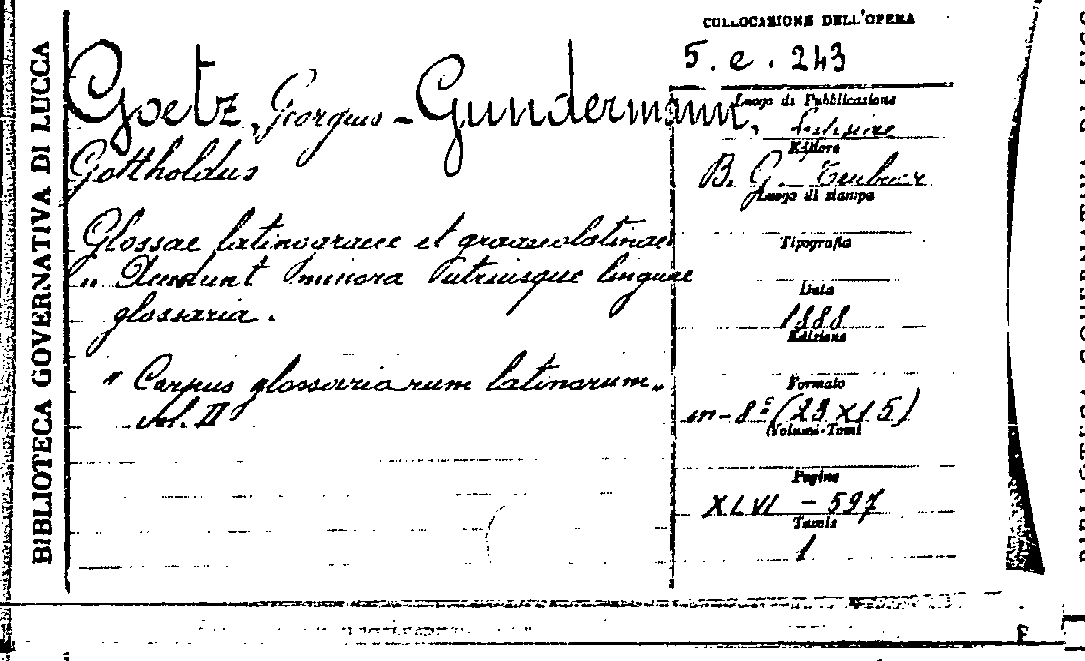 BIBLIOTECA GOVERNATIVA DI LUCCA
COLLOCAZIONE DELL'OPERA
5. e. 243
Goetz, Georgius - Gundermann,
Gottholdus
Glossae latinograece et graecolatinae
" Accedunt minora utriusque linguae
glossaria.
" Corpus glossariorum latinorum "
vol. II
Luogo di Pubblicazione
Lipsiae
Editore
B. G. Teubner
Luogo di stampa
Tipografia
Data
1888
Edizione
Formato
in-8º (23x15)
Volumi-Tomi
Pagine
XLVI - 597
Tavole
1